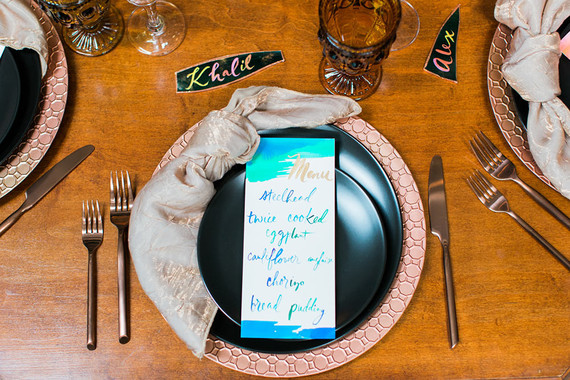 Khalil
Alex
Menu
steelhead
twice cooked
eggplant
cauliflower
chorizo
bread pudding